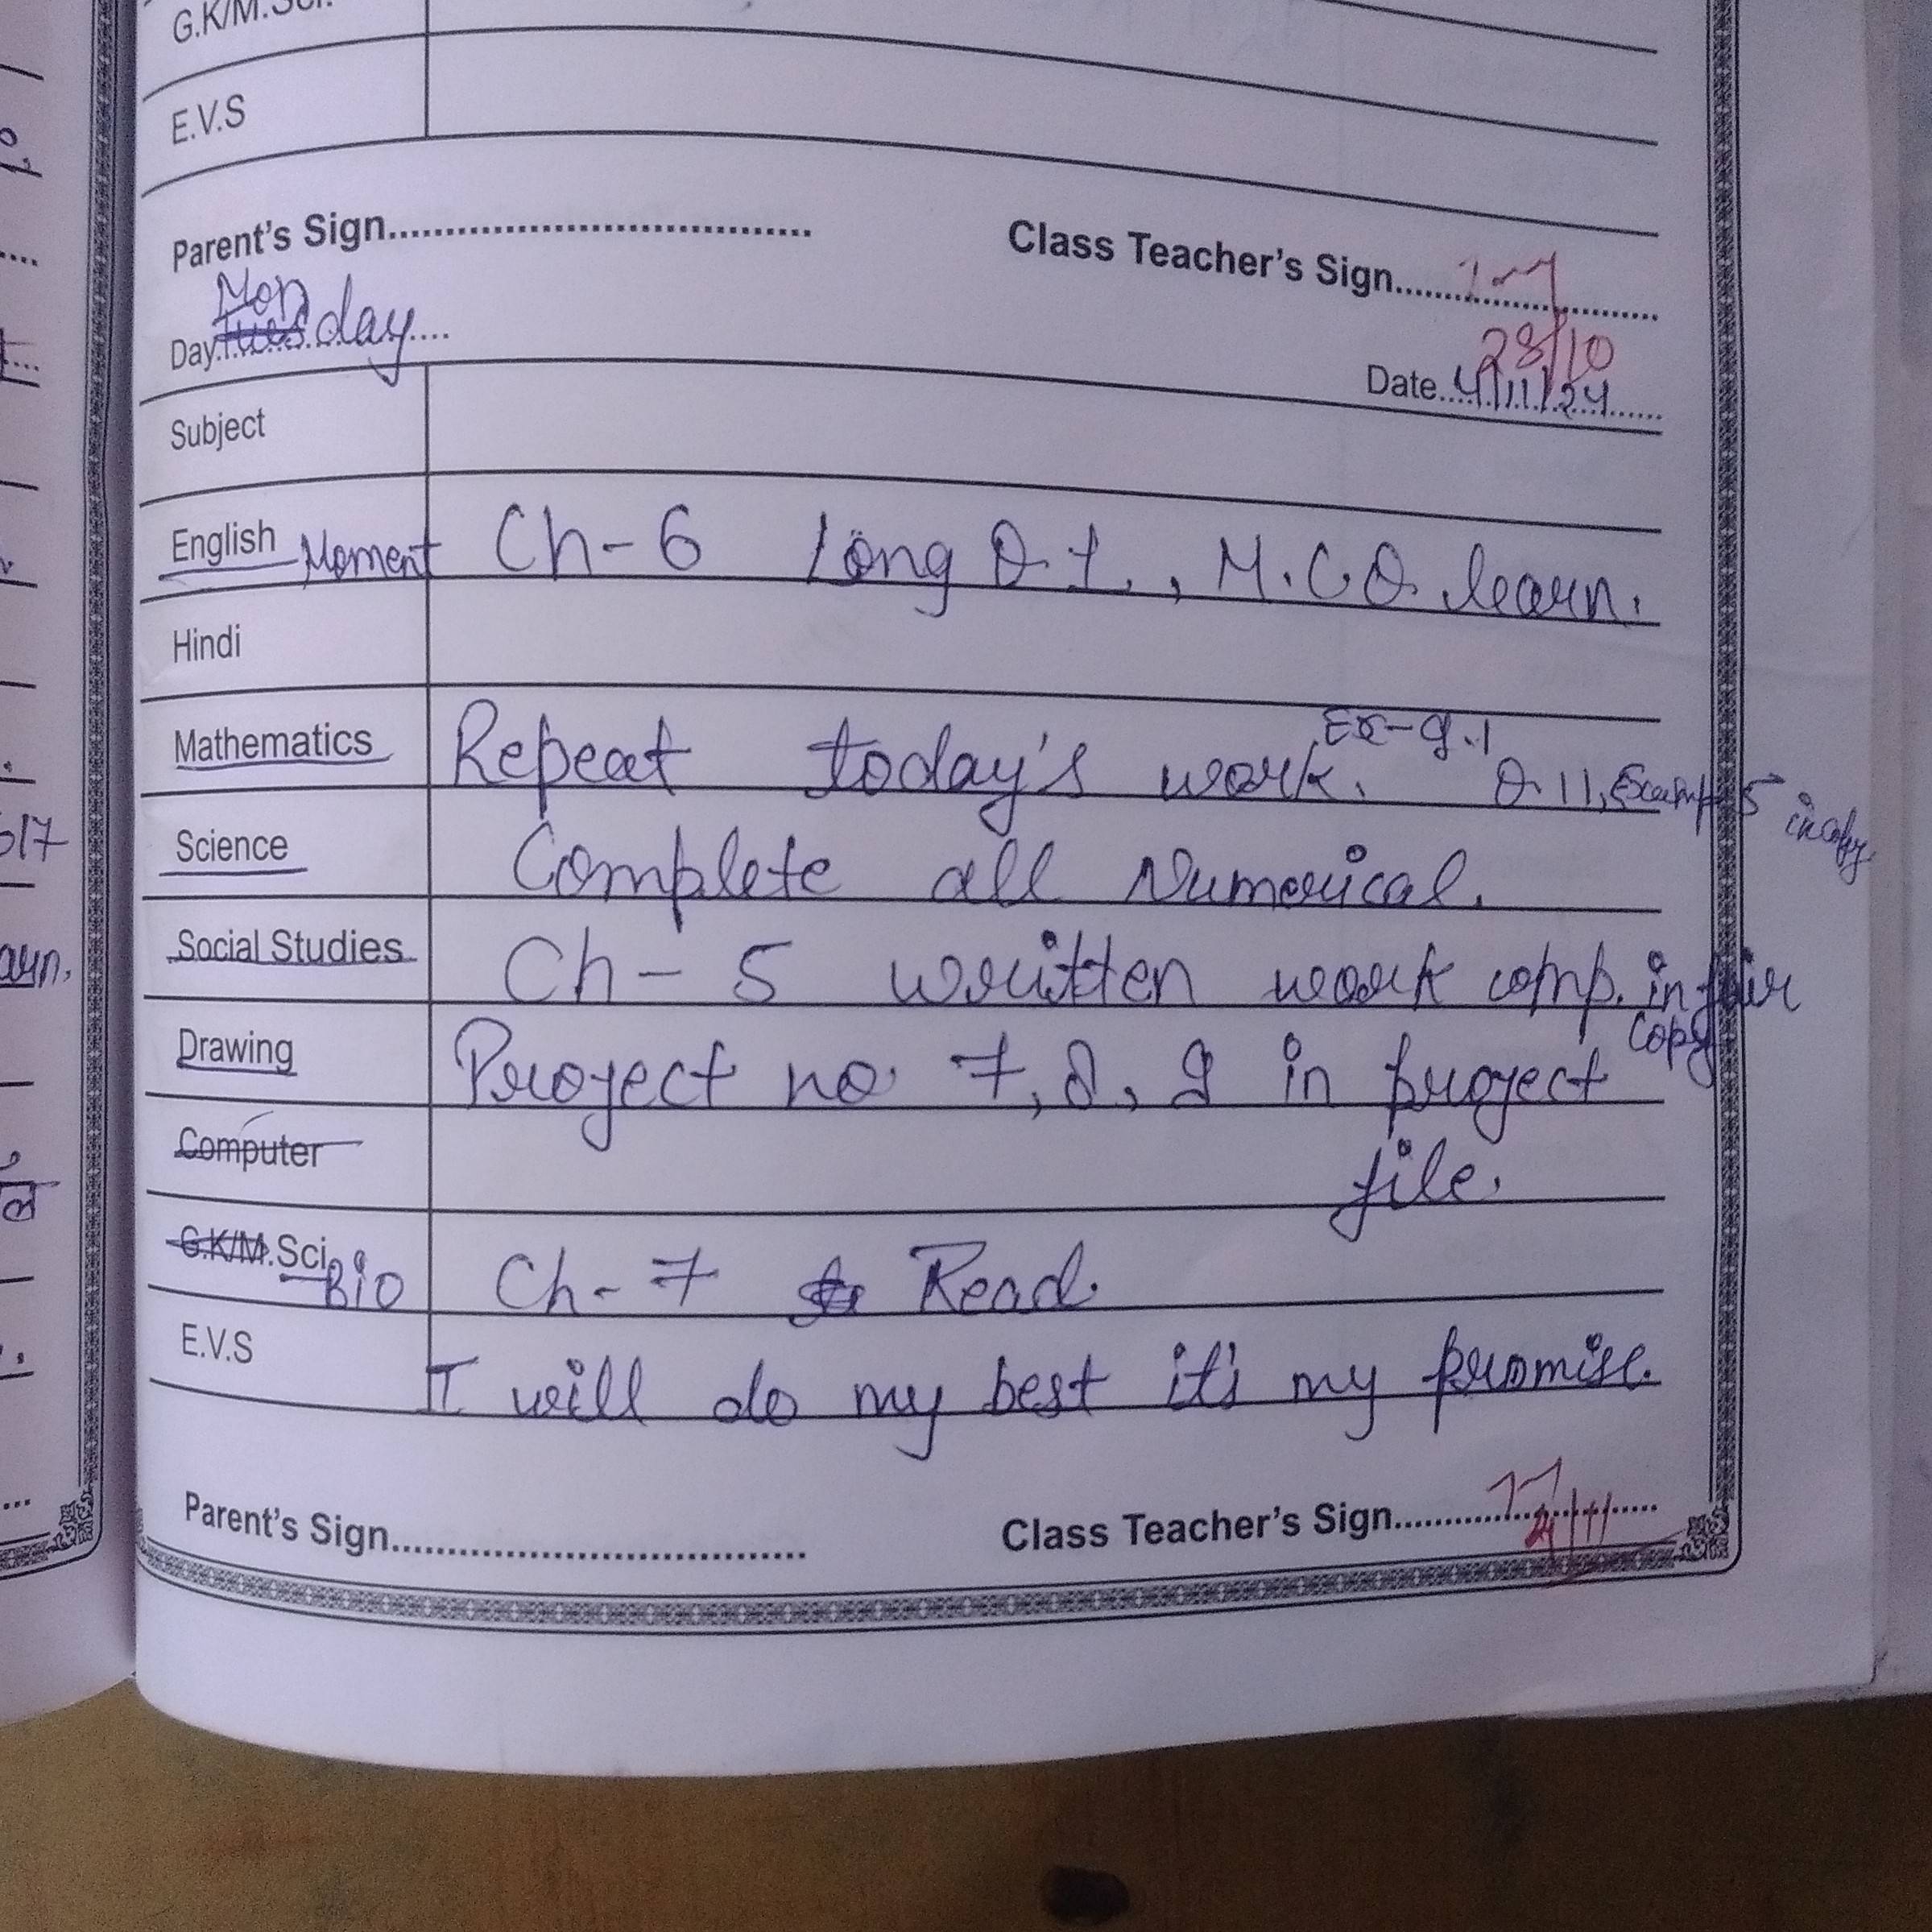 G.K/M.Sci.
E.V.S
Parent's Sign.................................... Class Teacher's Sign....................
28/10
Day Monday.... Date..4/11/24......
Subject
English Moment Ch-6 Long Q.1., M.C.Q. learn.
Hindi
Mathematics Repeat today's work. Ex-9.1 Q.11, Examp 5 in copy
Science Complete all Numerical.
Social Studies Ch-5 written work comp. in fair copy
Drawing Proyect no. 7, 8, 9 in proyect
file.
Computer
G.K/M.Sci. Bio Ch-7 Read.
E.V.S I will do my best it's my promise.
Parent's Sign.................................... Class Teacher's Sign....................
4/11
617